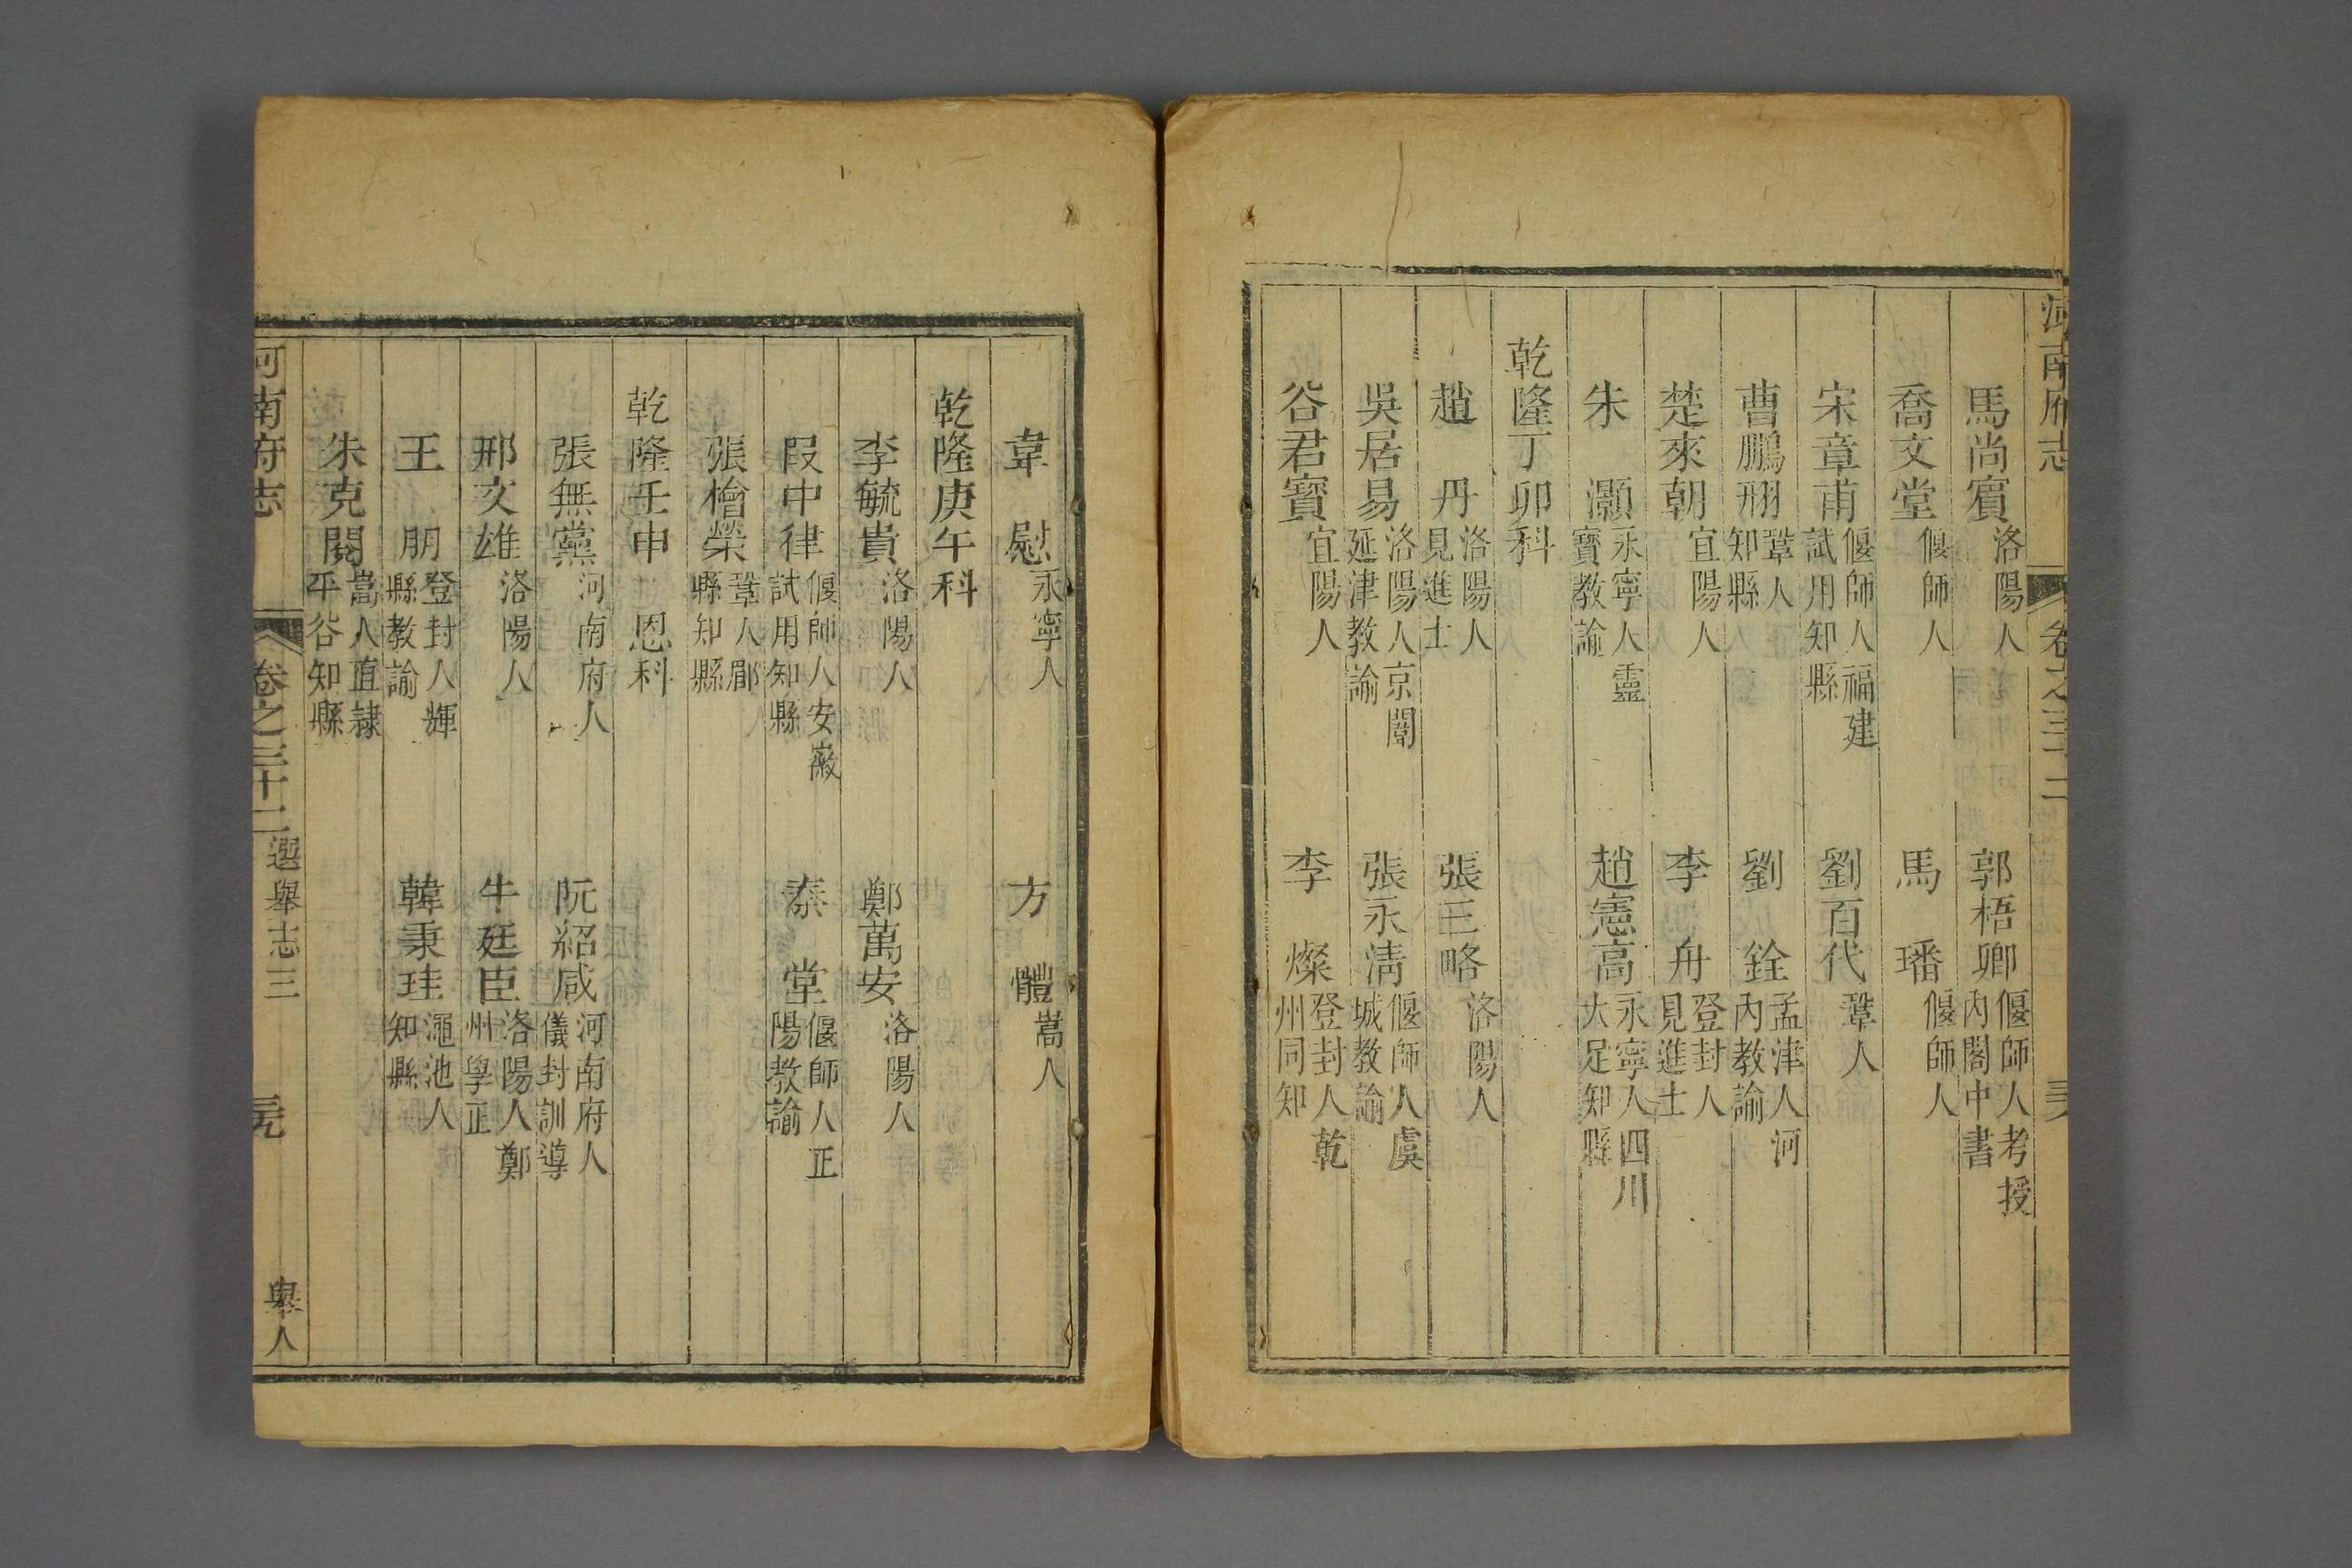 河南府志 卷之三十二
馬尚賓 洛陽人 郭梧卿 偃師人考授內閣中書
喬文堂 偃師人 馬 璠 偃師人
宋章甫 偃師人福建試用知縣 劉百代 鞏人
曹鵬翮 鞏人知縣 劉 銓 孟津人河內教諭
楚來朝 宜陽人 李 舟 登封人見進士
朱 灝 永寧人靈寶教諭 趙憲高 永寧人四川大足知縣
乾隆丁卯科
趙 丹 洛陽人見進士 張三略 洛陽人
吳居易 洛陽人京闈延津教諭 張永清 偃師人虞城教諭
谷君寶 宜陽人 李 燦 登封人乾州同知
韋 慰 永寧人 方 體 嵩人
乾隆庚午科
李毓貴 洛陽人 鄭萬安 洛陽人
段中律 偃師人安徽試用知縣 泰 堂 偃師人正陽教諭
張檜榮 鞏人郿縣知縣
乾隆壬申 恩科
張無黨 河南府人 阮紹咸 河南府人儀封訓導
邢文雄 洛陽人 牛廷臣 洛陽人鄭州學正
王 朋 登封人輝縣教諭 韓秉珪 澠池人知縣
朱克閱 嵩人直隸平谷知縣
河南府志 卷之三十二 選舉志三 舉人